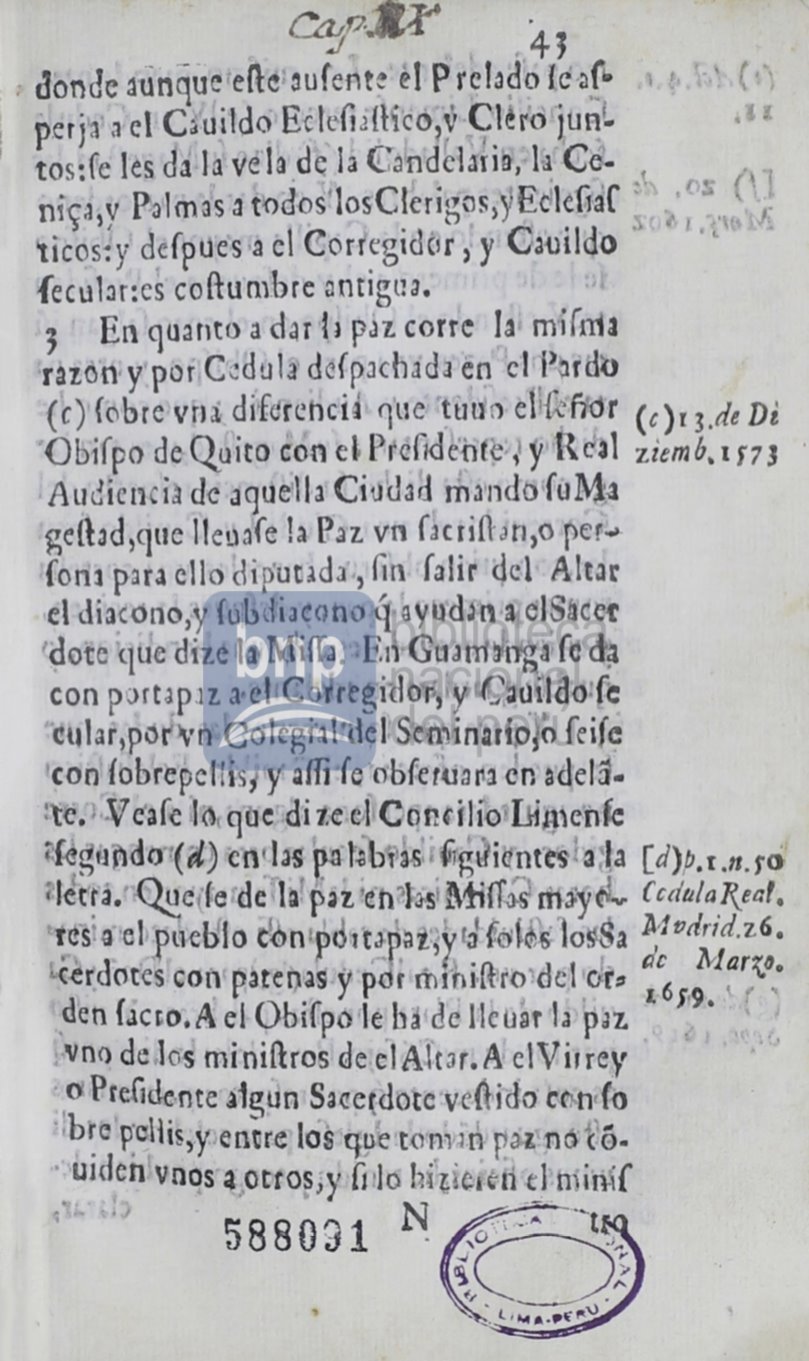 Cap. XI
43
donde aunque este ausente el Prelado se as-
perja a el Cauildo Eclesiastico, y Clero jun-
tos: se les da la vela de la Candelaria, la Ce-
niça, y Palmas a todos los Clerigos, y Eclesias
ticos: y despues a el Corregidor, y Cauildo
secular: es costumbre antigua.
3 En quanto a dar la paz corre la misma
razon y por Cedula despachada en el Pardo
(c) sobre vna diferencia que tuuo el señor
Obispo de Quito con el Presidente, y Real
Audiencia de aquella Ciudad mando su Ma
gestad, que lleuase la Paz vn sacristan, o per-
sona para ello diputada, sin salir del Altar
el diacono, y subdiacono q́ ayudan a el Sacer
dote que dize la Missa. En Guamanga se da
con portapaz a el Corregidor, y Cauildo se
cular, por vn Colegial del Seminario, o seise
con sobrepellis, y assi se obseruara en adelã-
te. Vease lo que dize el Concilio Limense
segundo (d) en las palabras siguientes a la
letra. Que se de la paz en las Missas mayo-
res a el pueblo con portapaz, y a solos los Sa
cerdotes con patenas y por ministro del or-
den sacro. A el Obispo le ha de lleuar la paz
vno de los ministros de el Altar. A el Virrey
o Presidente algun Sacerdote vestido con so
bre pellis, y entre los que toman paz no cõ-
uiden vnos a otros, y si lo hizieren el minis
N
tro
(c) 13. de Di
ziemb. 1573
[d) p. 1. n. 50
Cedula Real.
Madrid. 26.
de Marzo.
1659.
588091
bnp biblioteca
nacional
del perú
BIBLIOTECA NACIONAL
- LIMA-PERU -